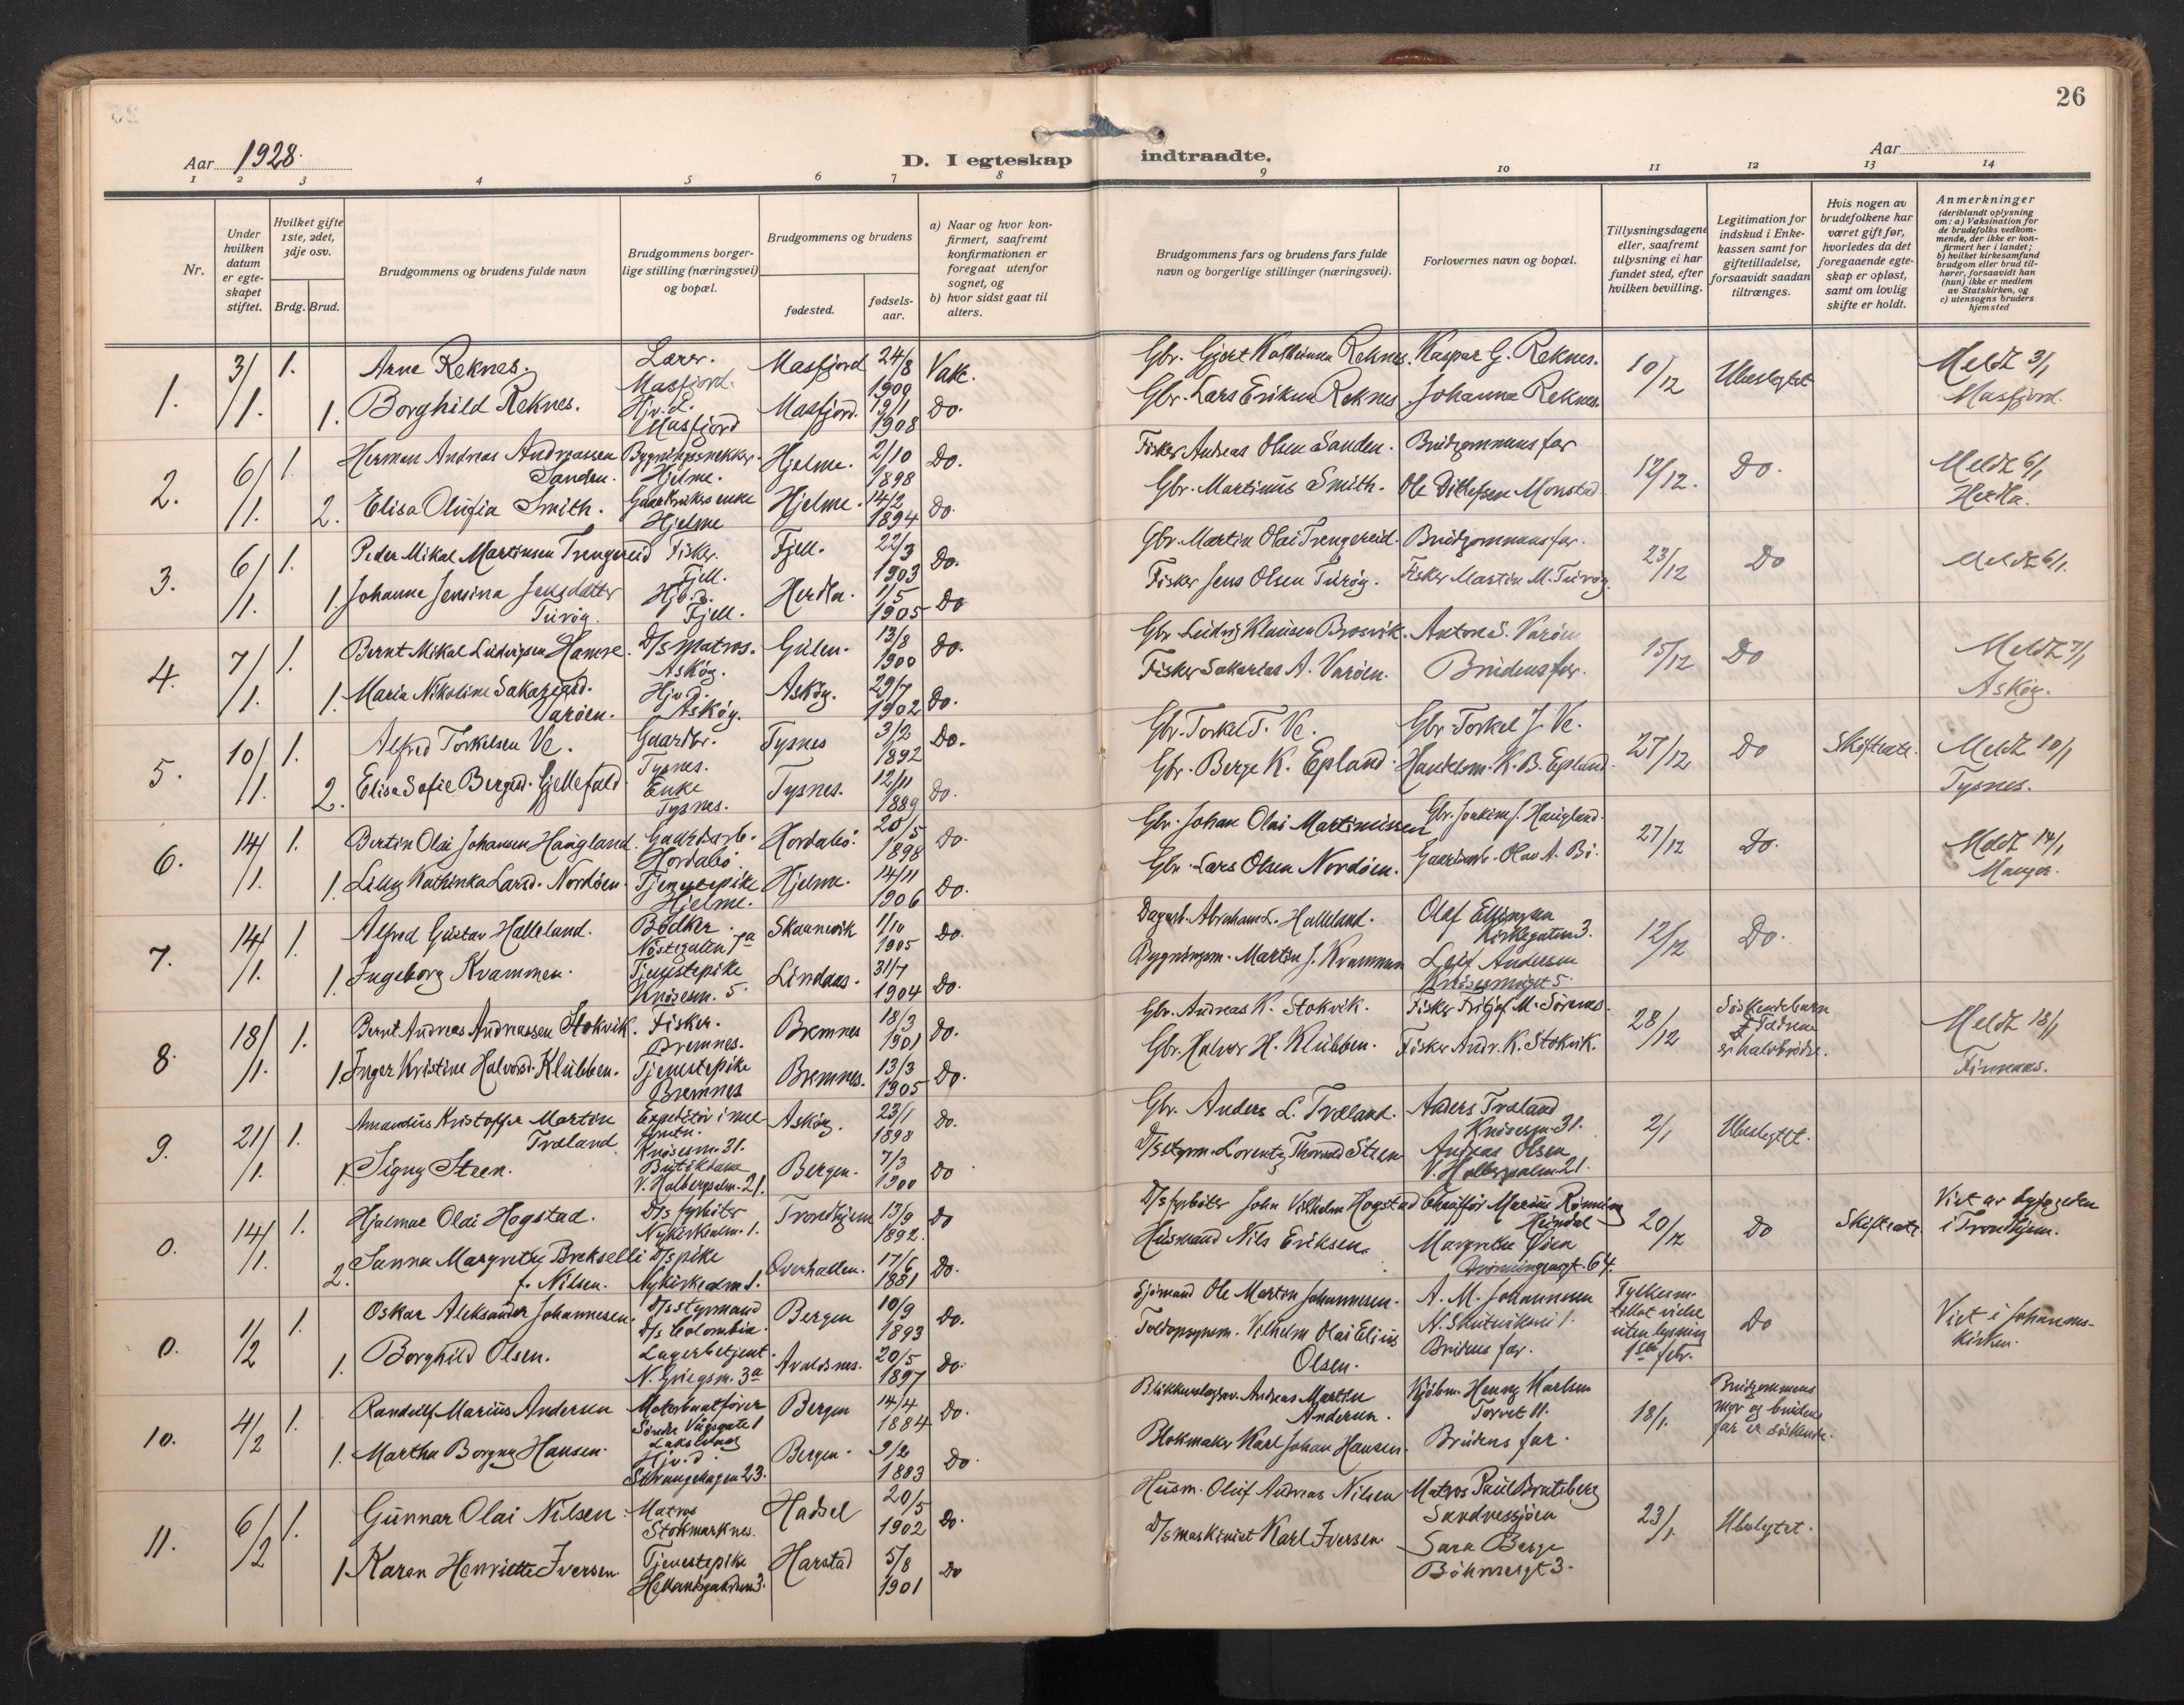 26
Aar 1928.
D. I egteskap indtraadte.
Aar
1 2 3 4 5 6 7 8 9 10 11 12 13 14
Nr.
Under hvilken datum er egteskapet stiftet.
Hvilket gifte 1ste, 2det, 3dje osv.
Brdg. Brud.
Brudgommens og brudens fulde navn
Brudgommens borgerlige stilling (næringsvei) og bopæl.
Brudgommens og brudens
fødested.
fødselsaar.
a) Naar og hvor konfirmert, saafremt konfirmationen er foregaat utenfor sognet, og
b) hvor sidst gaat til alters.
Brudgommens fars og brudens fars fulde navn og borgerlige stillinger (næringsvei).
Forlovernes navn og bopæl.
Tillysningsdagene eller, saafremt tillysning ei har fundet sted, efter hvilken bevilling.
Legitimation for indskud i Enkekassen samt for giftetilladelse, forsaavidt saadan tiltrænges.
Hvis nogen av brudefolkene har været gift før, hvorledes da det foregaaende egteskap er opløst, samt om lovlig skifte er holdt.
Anmerkninger
(deriblandt oplysning om: a) Vaksination for de brudefolks vedkommende, der ikke er konfirmert her i landet;
b) hvilket kirkesamfund brudgom eller brud tilhører, forsaavidt han (hun) ikke er medlem av Statskirken, og
c) utensogns bruders hjemsted
1. 3/1. 1. Arne Reknes. Lærer. Masfjord. Masfjord 24/8 1900 Vak. Gbr. Gjert Reknes. Kaspar G. Reknes. 10/12 Ubeslegtet Meldt 3/1 Masfjord.
1. Borghild Reknes. Hjv. d. Masfjord Masfjord. 19/1 1908 Do. Gbr. Lars Eriksen Reknes Johanna Reknes.
2. 6/1. 1. Herman Andreas Andreassen Sanden. Bygningssnekker. Hjelme. Hjelme. 2/10 1898 Do. Fisker Andreas Olsen Sanden. Brudgommens far 12/12. Do. Meldt 6/1 Herdla.
2. Elisa Olufia Smith. Gaardbrukers enke Hjelme Hjelme. 14/2 1894 Do. Gbr. Martinus Smith. Ole Ditlefsen Monstad
3. 6/1. 1. Peder Mikal Martinsen Trengereid Fisker. Fjell. Fjell. 22/3 1903 Do. Gbr. Martin Olai Trengereid. Brudgommens far. 23/12 Do Meldt 6/1.
1. Johanne Jensine Jensdatter Turøy. Hjv. d. Fjell. Herdla. 1/5 1905 Do Fisker Jens Olsen Turøy. Fisker Martin M. Turøy
4. 7/1. 1. Bernt Mikal Ludvigsen Hamre. D/s matros. Askøy. Gulen. 13/8 1900 Do. Gbr. Ludvig Klausen Brosvik. Anton S. Varøen 15/12 Do Meldt 7/1 Askøy.
1. Maria Nikoline Sakariasd. Varøen. Hjv. d. Askøy. Askøy. 29/7 1902 Do. Fisker Sakarias A. Varøen. Brudens far.
5. 10/1. 1. Alfred Torkelsen Ve. Gaardbr. Tysnes. Tysnes 3/2 1892 Do. Gbr. Torkel T. Ve. Gbr. Torkel J. Ve. 27/12 Do Skifteatt. Meldt 10/1 Tysnes.
2. Elisa Sofie Bergesd. Gjellefald. Enke Tysnes. Tysnes. 12/11 1889 Do. Gbr. Berge K. Epland. Handelsm. K. B. Epland.
6. 14/1. 1. Bertin Olai Johansen Haugland. Gaardarb. Hordabø. Hordabø. 20/5 1898 Do. Gbr. Johan Olai Martinussen Gbr. Joakim J. Haugland. 27/12 Do. Meldt 14/1 Manger.
1. Lilly Kathinka Larsd. Nordøen. Tjenestepike Hjelme. Hjelme. 14/11 1906 Do. Gbr. Lars Olsen Nordøen. Gaardarb. Olav A. Bø.
7. 14/1. 1. Alfred Gustav Halleland. Bødker. Nøstegaten 7a Skaanevik 1/10 1905 Do. Dagarb. Abraham L. Halleland. Olaf Ellingsen Kirkegaten 3. 12/12 Do.
1. Ingeborg Kvammen. Tjenestepike Knøsesm. 5. Lindaas. 31/7 1904 Do. Bygningsm. Martin J. Kvammen Leif Andersen Knøsesmuget 5.
8. 18/1. 1. Bernt Andreas Andreassen Stokvik. Fisker. Bremnes. Bremnes 18/3 1901 Do. Gbr. Andreas K. Stokvik. Fisker Fritjof M. Sørnes. 28/12 Søskendebarn Fædrene er halvbrødre. Meldt 18/1 Finnaas.
1. Inger Kristine Halvorsd. Klubben. Tjenestepike Bremnes Bremnes. 13/3 1905 Do. Gbr. Halvor H. Klubben. Fisker Andr. K. Stokvik.
9. 21/1. 1. Amandus Kristoffer Martin Træland. Expeditør i Knøsesm. 31. Askøy. 23/1 1898 Do. Gbr. Anders L. Træland. Anders Træland Knøsesm. 31. 2/1 Ubeslegtet.
1. Signy Steen. Butikdame V. Holbergsalm. 21. Bergen. 7/3 1900 Do D/s styrm. Lorentz Steen Andreas Olsen V. Holbergsalm. 21.
0. 14/1. 1. Hjalmar Oldi Hogstad. D/s fyrbøter Nykirkealm. 1. Trondhjem 13/9 1892. Do D/s fyrbøter John Vilhelm Hogstad Chauffør Marius Rønning 20/12 Do Skifteatt. Viet av byfogden i Trondhjem.
2. Sanna Margrethe Brekselli f. Nilsen. D/s pike Nykirkealm 1. Overhallen. 17/6 1881 Do. Husmand Nils Eriksen. Margrethe Øien Dronningensgt. 64.
0. 1/2 1. Oskar Aleksander Johannesen. D/s styrmand D/s Colombia. Bergen 10/9 1893 Do. Sjømand Ole Martin Johannesen. A. M. Johannesen N. Skuteviksvei 1. Fylkesm. tillot vielse uten lysning 1ste febr. Do Viet i Johanneskirken.
1. Borghild Olsen. Lagerbetjent. N. Griegsm. 3a Avaldsnes. 20/5 1897 Do. Toldopsynsm. Vilhelm Olai Elius Olsen. Brudens far.
10. 4/2 1. Randulf Marius Andersen Motorbaatfører Søndre Vågsgate 1 Laksevaag Bergen 14/4 1884 Do. Blikkenslagersv. Andreas Martin Andersen. Kjøbm. Henry Karlsen Torvet 11. 18/1. Brudgommens mor og brudens far er søskende.
1. Martha Borgny Hansen. Hjv. d. Strangehagen 23. Bergen. 9/2 1883 Do. Blokmaker Karl Johan Hansen. Brudens far.
11. 6/2 1. Gunnar Olai Nilsen Matros Stokmarknes. Hadsel 20/5 1902 Do. Husm. Oluf Andreas Nilsen Matros Paul Bratsberg Sandnessjøen 23/1. Ubeslegtet.
1. Karen Henriette Iversen Tjenestepike 3. Harstad 5/8 1901 Do D/s maskinist Karl Iversen. Sara Berge Bøhmergt 3.